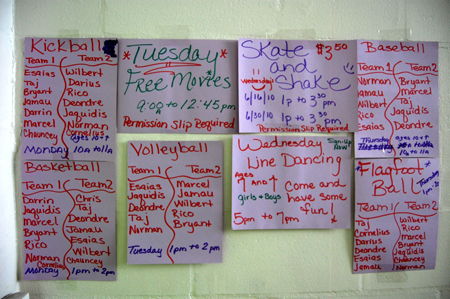 Kickball
Team 1 Team 2
Esaias Wilbert
Taj Darius
Bryant Rico
Jamau Deondre
Darrin Jaquidis
Marcel Norman
Chauncey Cornelius
Ages 10+
Monday 10a to 11a
*Tuesday*
Free Movies
9:00 to 12:45 pm
Permission Slip Required
Skate $3.50
and
Shake
Wednesday
6/16/10 1p to 3:30 pm
6/30/10 1p to 3:30 pm
Permission Slip Required
Baseball
Team 1 Team 2
Norman Darrin
Taj Bryant
Jamau Marcel
Wilbert Jaquidis
Rico Deondre
Esaias
ages 10+
Thursday
10a to 11a
Basketball
Team 1 Team 2
Darrin Chris
Jaquidis Taj
Marcel Deondre
Bryant Jamau
Rico Esaias
Norman Wilbert
Cornelius Chauncey
Monday 1pm to 2pm
Volleyball
Team 1 Team 2
Esaias Marcel
Jaquidis Jamau
Deondre Wilbert
Taj Rico
Norman Bryant
Tuesday 1pm to 2pm
Wednesday Sign-Up Now!
Line Dancing
Ages
9 and up
Girls & Boys
Come and
have some
fun!
5pm to 7pm
Flagfoot
Ball
Thursday
Team 1 Team 2
Taj Wilbert
Cornelius Rico
Darius Marcel
Deondre Bryant
Esaias Jaquidis
Jamau Norman